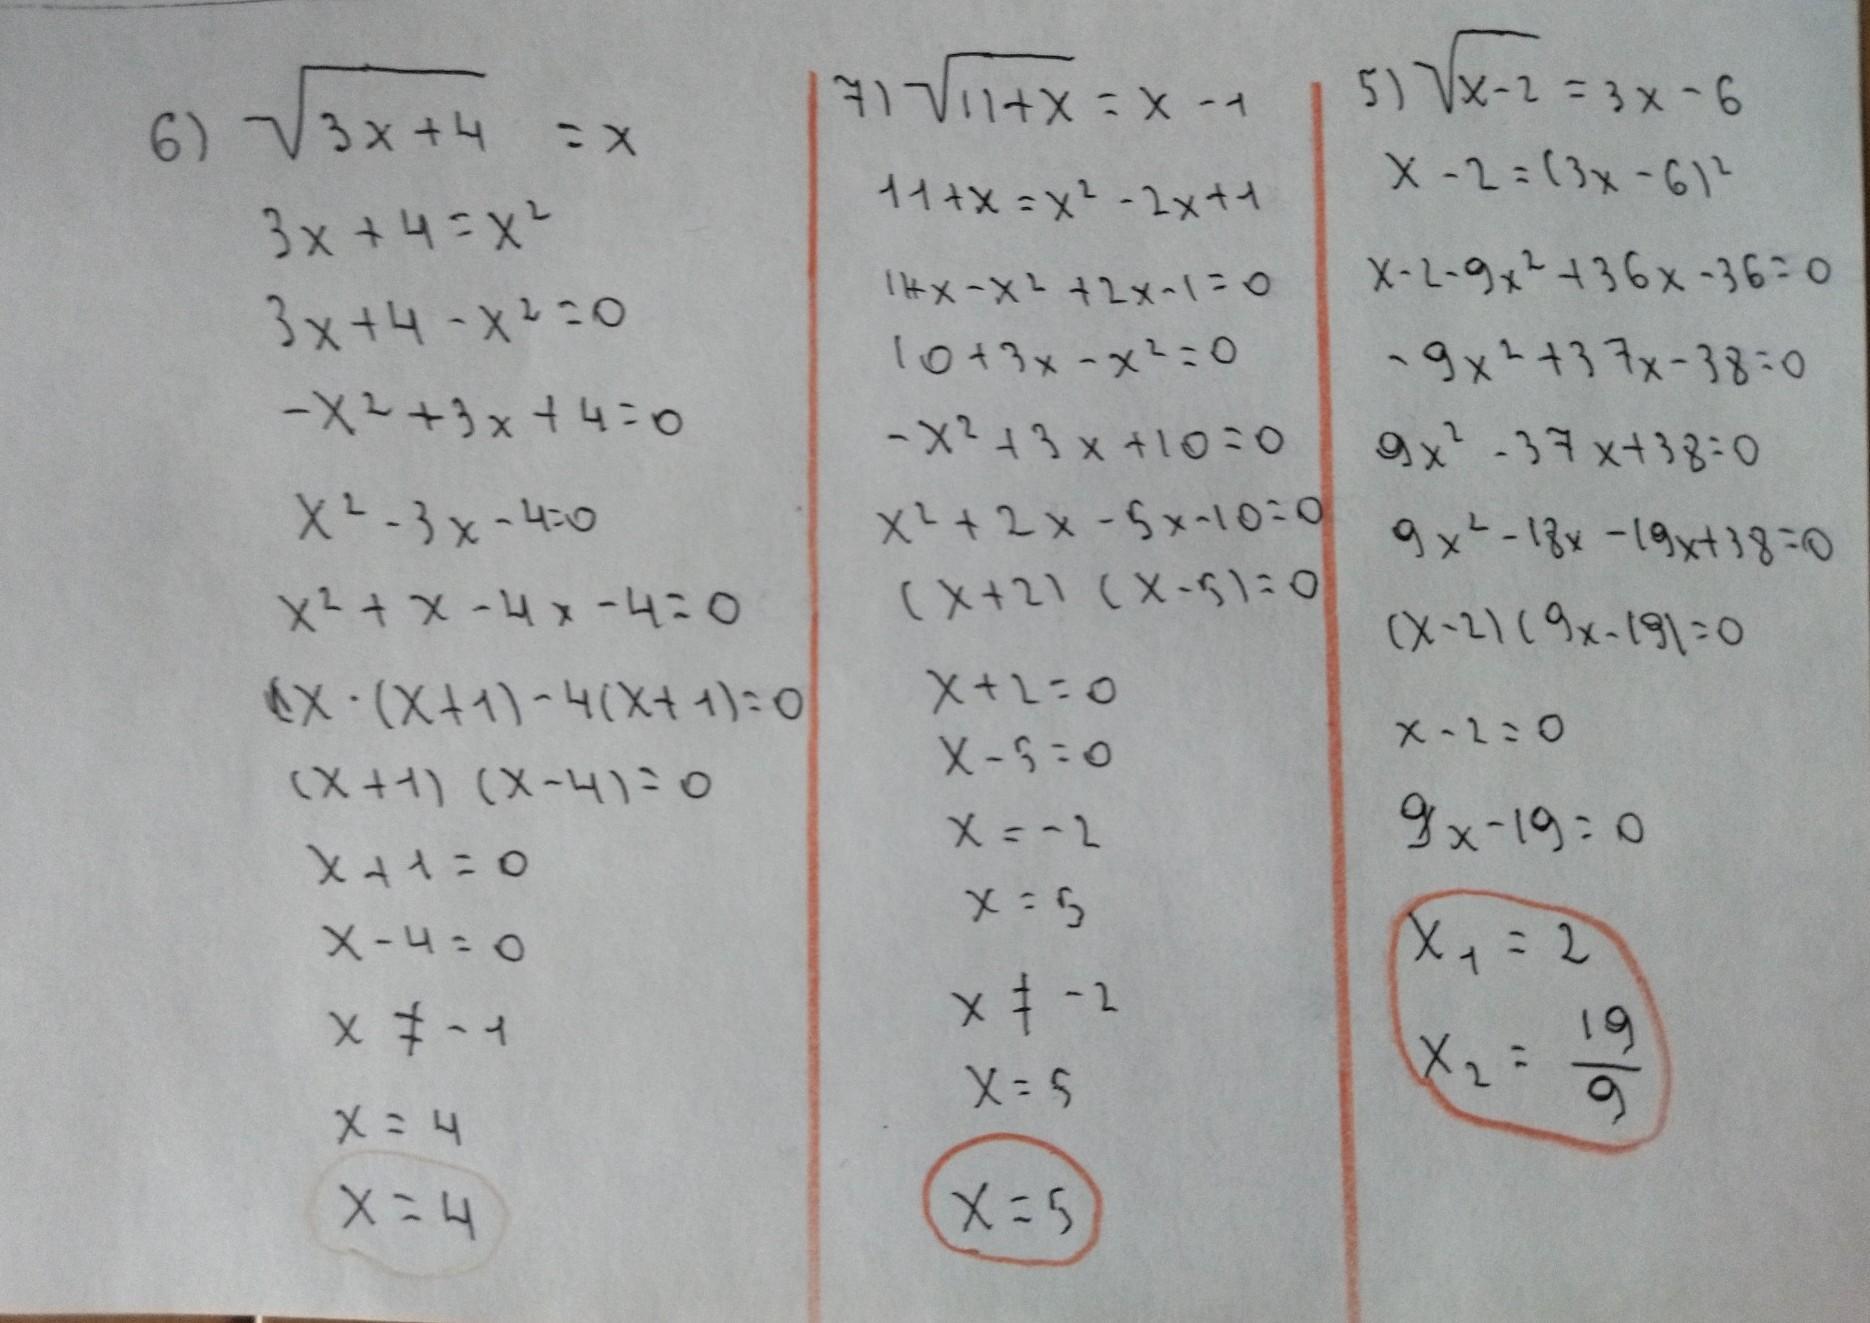 6) √3x+4 = x
3x+4=x²
3x+4-x²=0
-x²+3x+4=0
x²-3x-4=0
x²+x-4x-4=0
x·(x+1)-4(x+1)=0
(x+1) (x-4)=0
x+1=0
x-4=0
x≠-1
x=4
x=4
7) √11+x = x-1
11+x=x²-2x+1
11+x-x²+2x-1=0
10+3x-x²=0
-x²+3x+10=0
x²+2x-5x-10=0
(x+2) (x-5)=0
x+2=0
x-5=0
x=-2
x=5
x≠-2
x=5
x=5
5) √x-2 = 3x-6
x-2=(3x-6)²
x-2-9x²+36x-36=0
-9x²+37x-38=0
9x²-37x+38=0
9x²-18x-19x+38=0
(x-2)(9x-19)=0
x-2=0
9x-19=0
x₁=2
x₂=19/9